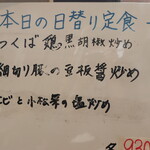 本日の日替り定食
つくば鶏黒胡椒炒め
細切り豚の豆板醤炒め
と小松菜の塩炒め
各930